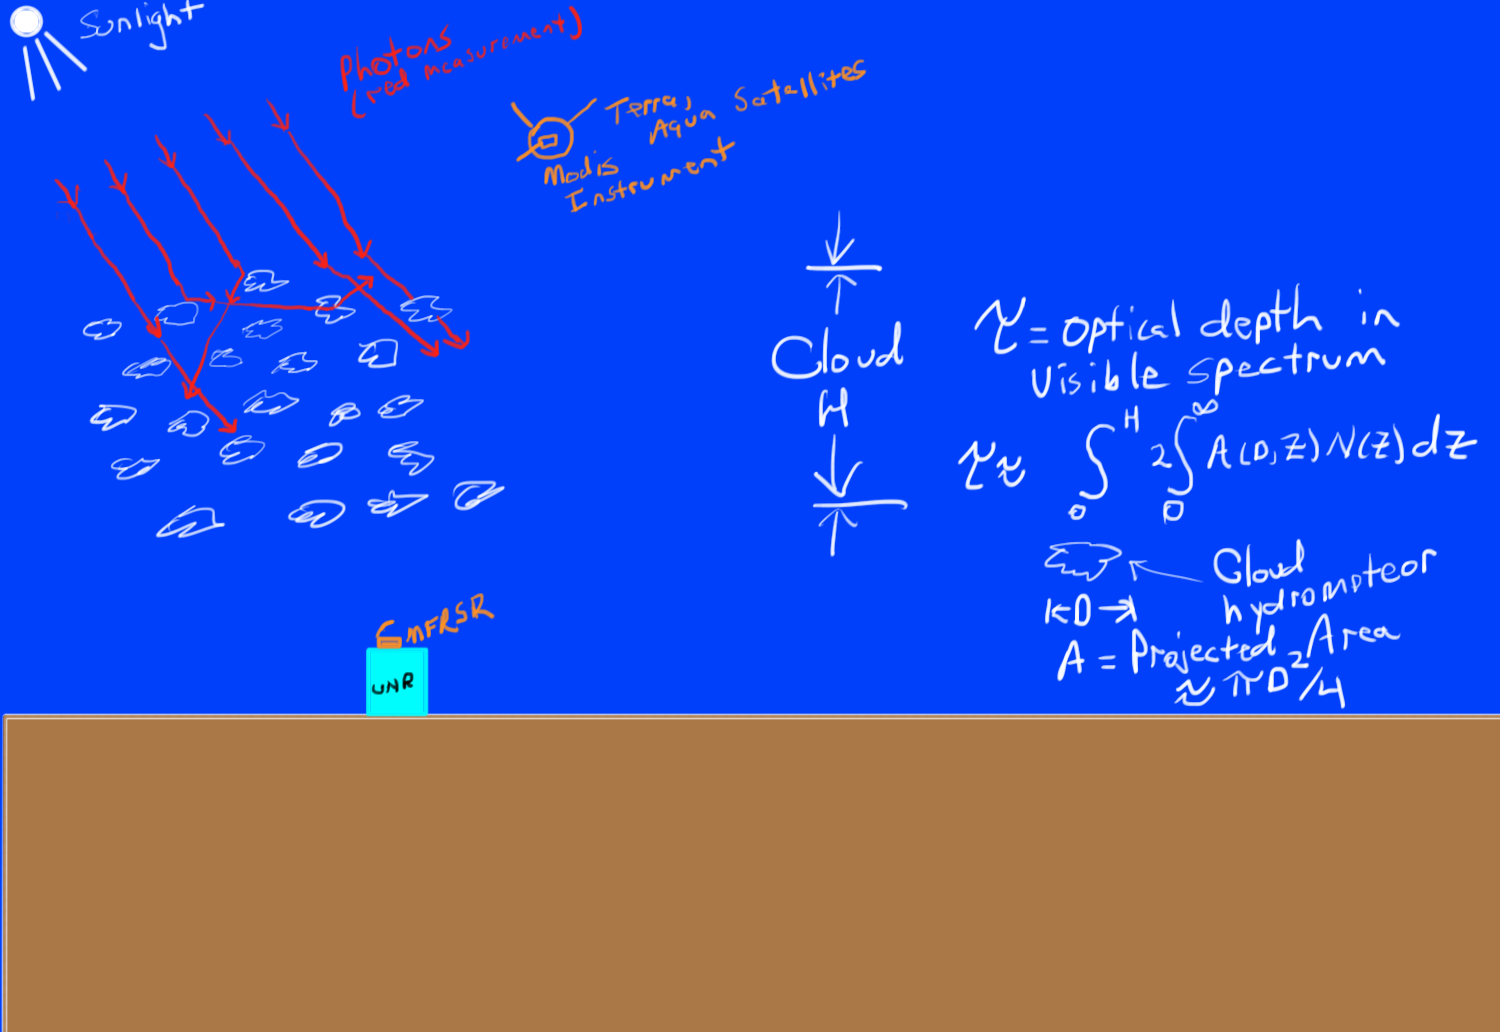 Sunlight
Photons
(red measurement)
Terra,
Aqua Satellites
Modis
Instrument
Cloud
H
τ = optical depth in
visible spectrum
τ ≈ ∫₀ᴴ 2∫₀^∞ A(D,Z) N(Z) dz
Cloud
hydrometeor
D
A = Projected Area
≈ πD²/4
MFRSR
UNR